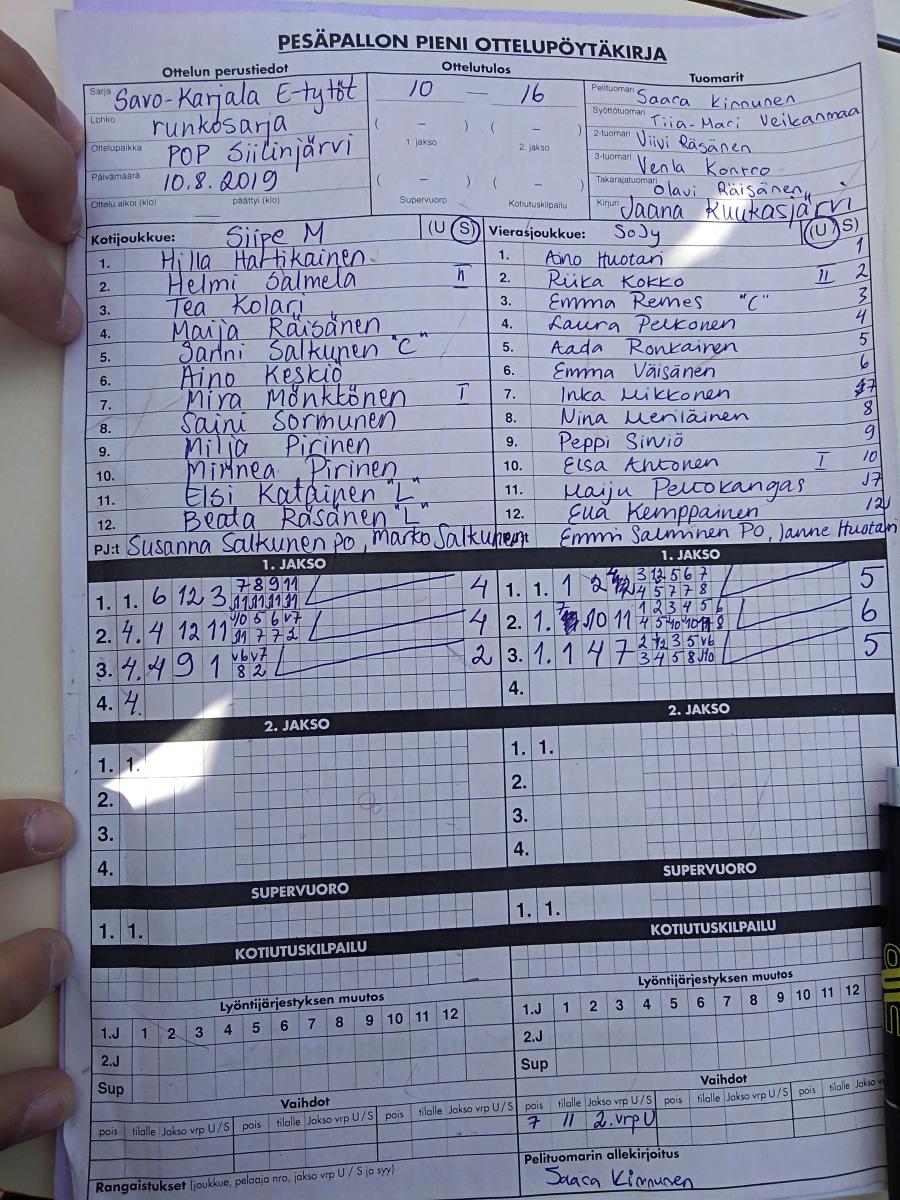 PESÄPALLON PIENI OTTELUPÖYTÄKIRJA
Ottelun perustiedot
Sarja Savo-Karjala E-tytöt
Lohko runkosarja
Ottelupaikka POP Siilinjärvi
Päivämäärä 10.8.2019
Ottelu alkoi (klo) päättyi (klo)
Ottelutulos
10 — 16
( – ) ( – )
1. jakso 2. jakso
( – ) ( – )
Supervuoro Kotiutuskilpailu
Tuomarit
Pelituomari Saara Kinnunen
Syöttötuomari Tiia-Mari Veikanmaa
2-tuomari Viivi Räsänen
3-tuomari Venla Kontro
Takarajatuomari Olavi Räisänen
Kirjuri Jaana Kuukasjärvi
Kotijoukkue: Siipe M (U S)
1. Hilla Hartikainen
2. Helmi Salmela II
3. Tea Kolari
4. Maija Räisänen
5. Sanni Salkunen "C"
6. Aino Keskiö
7. Mira Mönkkönen I
8. Saini Sormunen
9. Milja Pirinen
10. Minnea Pirinen
11. Elsi Katainen "L"
12. Beata Räsänen "L"
PJ:t Susanna Salkunen PO, Marko Salkunen
Vierasjoukkue: SoJy (U S)
1. Aino Huotari 1
2. Riika Kokko II 2
3. Emma Remes "C" 3
4. Laura Pelkonen 4
5. Aada Ronkainen 5
6. Emma Väisänen 6
7. Inka Mikkonen 7
8. Nina Meriläinen 8
9. Peppi Sirviö 9
10. Elsa Ahtonen I 10
11. Maiju Peltokangas 17
12. Eila Kemppainen 12
Emmi Salminen PO, Janne Huotari
1. JAKSO
7 8 9 11
1. 1. 6 12 3 11 11 11 11 4
10 5 6 v7
2. 4. 4 12 11 11 7 7 2 4
v6 v7
3. 4. 4 9 1 8 2 2
4. 4.
1. JAKSO
3 12 5 6 7
1. 1. 1 2 4 5 7 7 8 5
1 2 3 4 5 6
2. 1. 7 10 11 6
3. 1. 1 4 7 3 4 5 8 10 5
4.
2. JAKSO
1. 1.
2.
3.
4.
2. JAKSO
1. 1.
2.
3.
4.
SUPERVUORO
1. 1.
SUPERVUORO
1. 1.
KOTIUTUSKILPAILU
KOTIUTUSKILPAILU
Lyöntijärjestyksen muutos
1.J 1 2 3 4 5 6 7 8 9 10 11 12
2.J
Sup
Lyöntijärjestyksen muutos
1.J 1 2 3 4 5 6 7 8 9 10 11 12
2.J
Sup
Vaihdot
pois tilalle Jakso vrp U / S pois tilalle Jakso vrp U / S pois tilalle Jakso vrp U / S
Vaihdot
pois tilalle Jakso vrp U / S pois tilalle Jakso vrp U / S pois tilalle Jakso
7 11 2. vrp U
Rangaistukset (joukkue, pelaaja nro, jakso vrp U / S ja syy)
Pelituomarin allekirjoitus
Saara Kinnunen